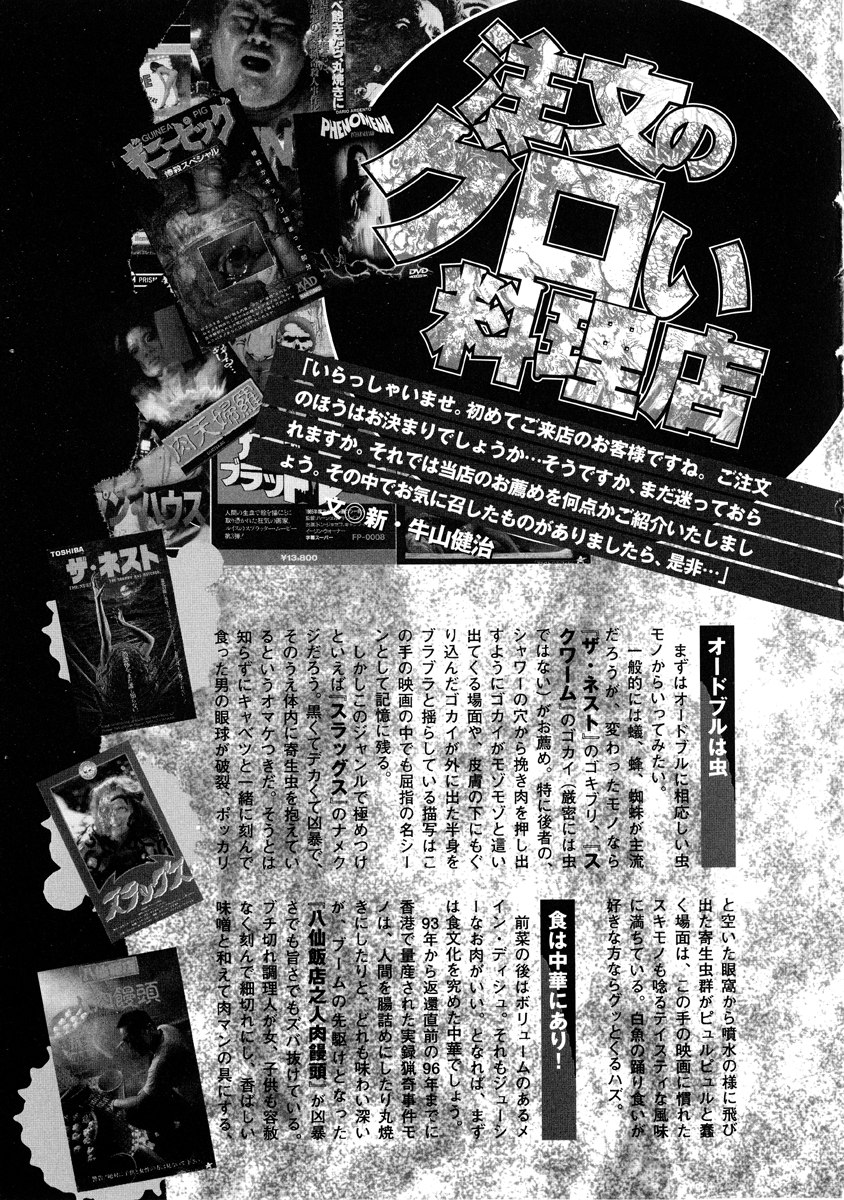 注文の
グロい
料理店
「いらっしゃいませ。初めてご来店のお客様ですね。ご注文
のほうはお決まりでしょうか…そうですか、まだ迷っておら
れますか。それでは当店のお薦めを何点かご紹介いたしまし
ょう。その中でお気に召したものがありましたら、是非…」
文◎新・牛山健治
オードブルは虫
まずはオードブルに相応しい虫
モノからいってみたい。
一般的には蟻、蜂、蜘蛛が主流
だろうが、変わったモノなら
『ザ・ネスト』のゴキブリ、『ス
クワーム』のゴカイ（厳密には虫
ではない）がお薦め。特に後者の、
シャワーの穴から挽き肉を押し出
すようにゴカイがモゾモゾと這い
出てくる場面や、皮膚の下にもぐ
り込んだゴカイが外に出た半身を
ブラブラと揺らしている描写はこ
の手の映画の中でも屈指の名シー
ンとして記憶に残る。
しかしこのジャンルで極めつけ
といえば『スラッグス』のナメク
ジだろう。黒くてデカくて凶暴で、
そのうえ体内に寄生虫を抱えてい
るというオマケつきだ。そうとは
知らずにキャベツと一緒に刻んで
食った男の眼球が破裂、ポッカリ
と空いた眼窩から噴水の様に飛び
出た寄生虫群がピュルピュルと蠢
く場面は、この手の映画に慣れた
スキモノも唸るテイスティな風味
に満ちている。白魚の踊り食いが
好きな方ならグッとくるハズ。
食は中華にあり！
前菜の後はボリュームのあるメ
イン・ディシュ。それもジューシ
ーなお肉がいい。となれば、まず
は食文化を究めた中華でしょう。
93年から返還直前の96年までに
香港で量産された実録猟奇事件モ
ノは、人間を腸詰めにしたり丸焼
きにしたりと、どれも味わい深い
が、ブームの先駆けとなった
『八仙飯店之人肉饅頭』が凶暴
さでも旨さでもズバ抜けている。
ブチ切れ調理人が女、子供も容赦
なく刻んで細切れにし、香ばしい
味噌と和えて肉マンの具にする、
べ飽きたら、丸焼きに
GUINEA PIG
ギニーピッグ
惨殺スペシャル
MAD
DARIO ARGENTO
PHENOMENA
DVD
肉天婦羅
ハウス
ザ・
ブラッド
¥13,800
FP-0008
TOSHIBA
ザ・ネスト
スラッグス
饅頭